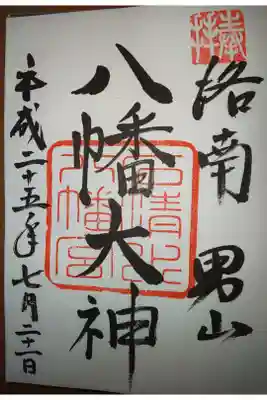 奉拝
洛南 男山
八幡大神
石清水八幡宮
平成二十五年七月二十一日